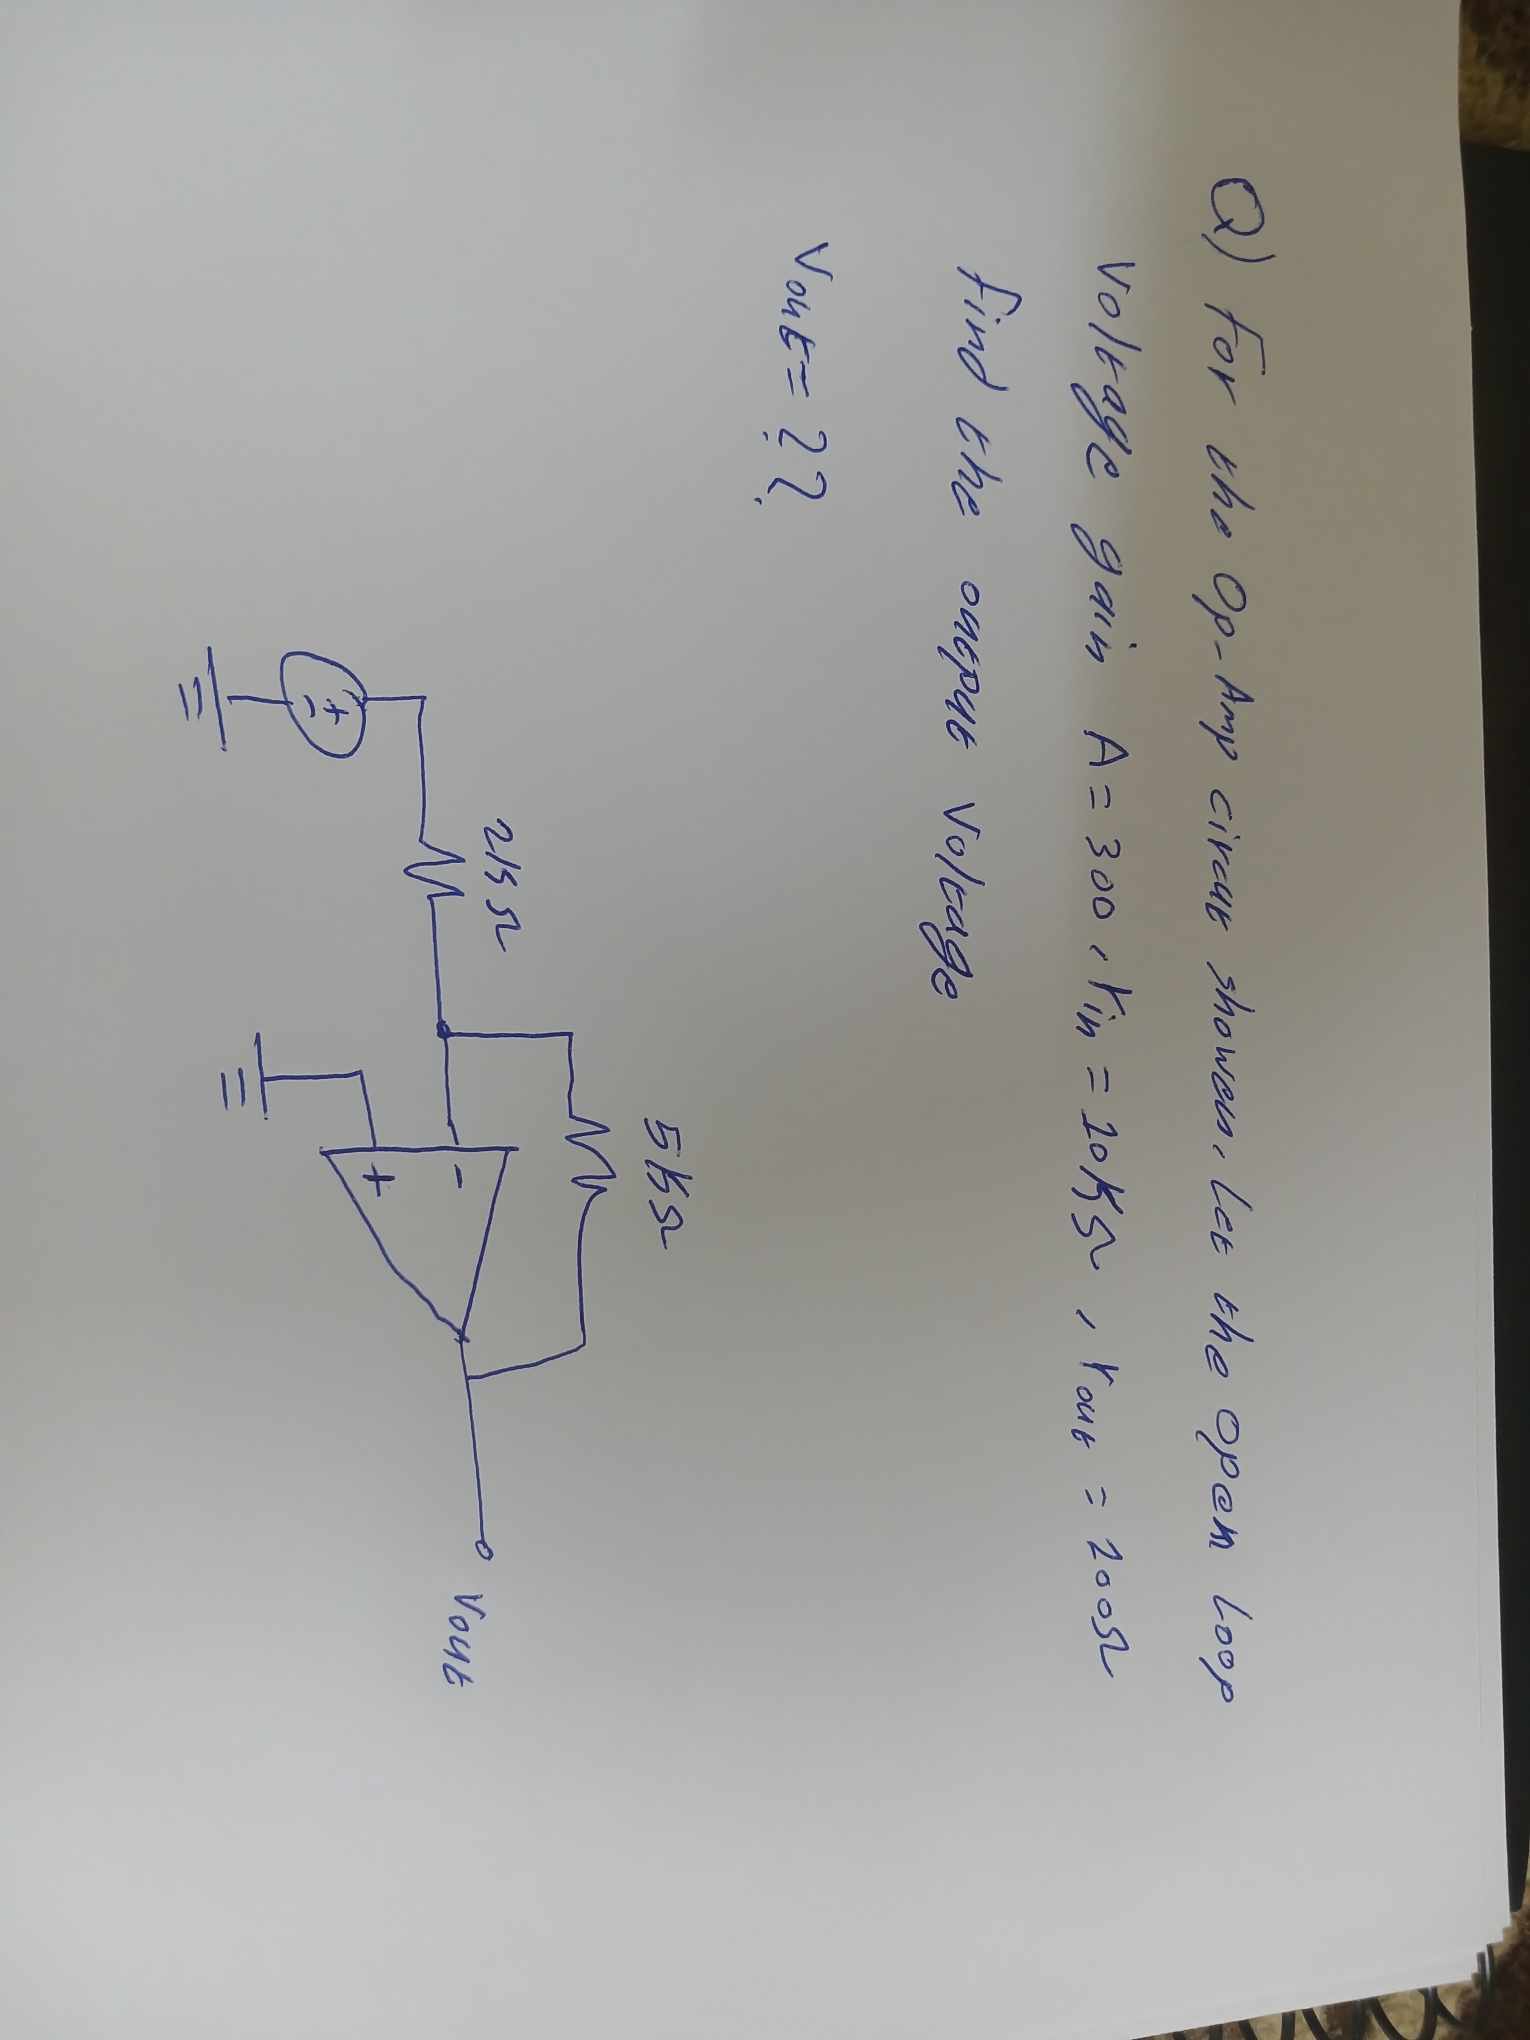 Q) For the Op-Amp circut shown, Let the open Loop
Voltage gain A = 300, rin = 20KΩ, rout = 200Ω
find the output Voltage
Vout = ??
5KΩ
2KΩ
+
-
-
+
Vout